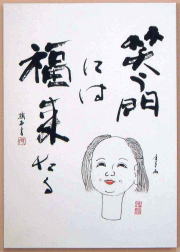 笑う門
には
福来たる